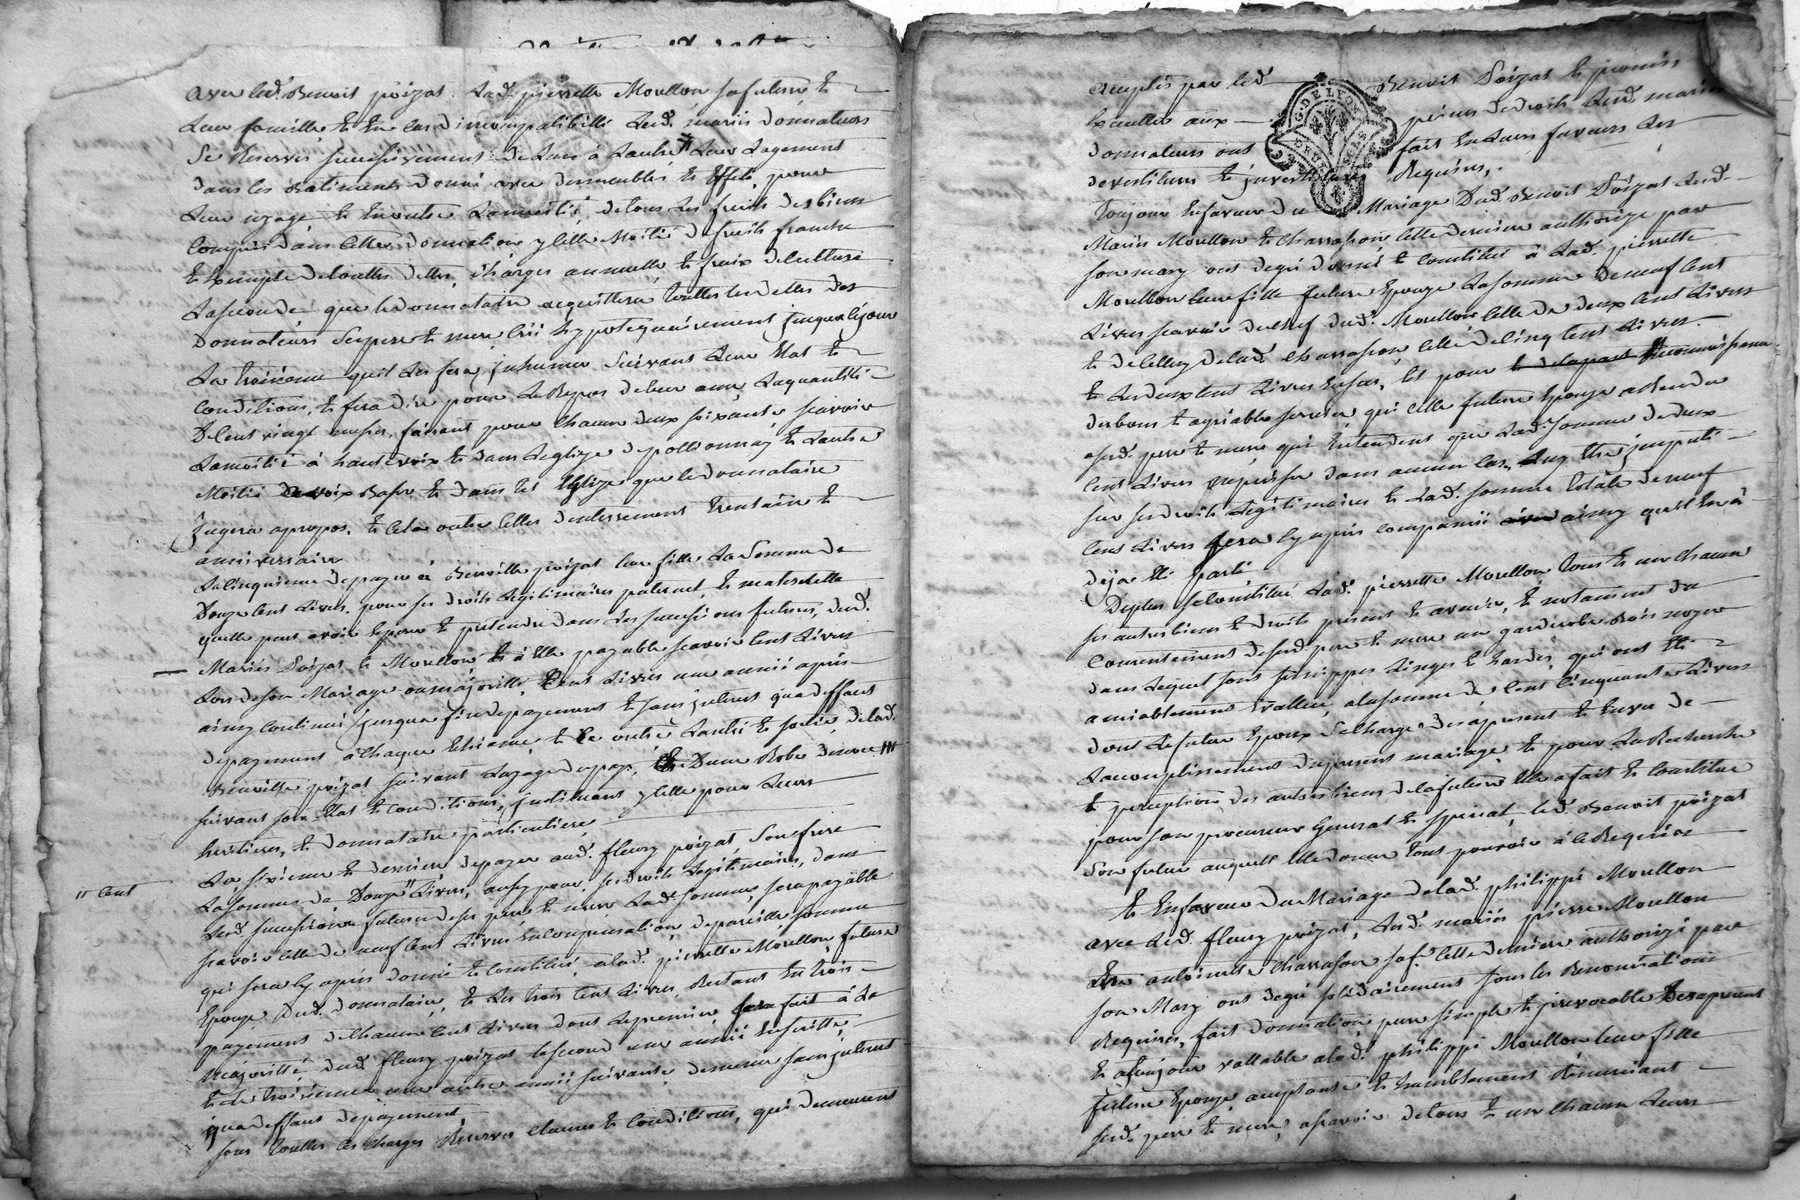 avec led. Benoit poizat. Lad. pierrette Moullon sa future et
Leur famille et En Cas d'incompatibilité Lesd. mariés donnateurs
Se Reserves successivement de Lun à Lautre Leur Logement
dans les batiments donné avec desmeubles et Effets pour
Leur uzage et En outre La moitié de tous Les fruits des biens
Compris dans cette donnation ycelle Moitié de fruits franche
et Exempte de touttes dettes, Charges annuelle et fraix de culture
La seconde que le donnataire acquittera touttes les dettes des
Donnateurs Ses pere et mere Crées hypotequairement jusqua ce jour
La troisieme quil Les fera jnhumer Suivant Leur Etat et
Conditions, et fera dire pour Le Repos de leur ame La quantité
De Cent vingt messes, faisant pour Chacun deux soixante scavoir
La moitié à haute voix et dans Leglize de pollionnay et Lautre
Moitié de voix Basse et dans tel Eglize que le donnataire
Jugera apropos. et cela outre celles d'enterrement trentain et
anniversaire
La cinquieme de payer à Benoitte poizat leur fille La Somme de
Douze Cent Livres, pour ses droits Legitimaires paternel, et maternelle
quelle peut avoir Esperer et pretendre dans Les successions futures, desd.
Mariés Poizat et Moullon, et à Elle payable scavoir Cent Livres
Lors de son Mariage ou majorité, Cent Livres une année après
ainsy Continué jusqua fin de payement et sans jnterest qua deffaut
de payement à Chaque Echéance, et Ce outre Lautre et sortie de lad.
Benoitte poizat suivant Luzage du pays, Et Dune Robe de noce
suivant son Etat et Conditions, jnstituant ycelle pour Leurs
heritiere, et donnataire particuliere
La sixieme et derniere de payer aud. fleury poizat Son frere
La somme de Douze " Livres, aussy pour ses droits Legitimaires, dans
" Cent
Lesd. successions futures de ses pere et mere Lad. somme sera payable
scavoir celle de neuf cent Livres En Compensation de pareille somme
qui sera Cy apres donné et Constitué, a lad. pierrette Moullon future
Epouze Dud. donnataire, et Les trois Cent Livres Restant En trois
payement de Chacun Cent Livres dont Le premier sera fait à La
majorité dud. fleury poizat le second une année Ensuitte,
et Le troisieme une autre année suivante, de meme sans jnterest
qua deffaut de payement
sous touttes Ces Charges Reserves Clauses et Conditions, qui demeurent
acceptés par led. Benoit Poizat et promis
Executter aux peines de droits Lesd. mariés
donnateurs ont fait En Leurs faveurs Les
devestitures et jnvestitures Requises,
Toujour En faveur du Mariage Dud. Benoit Poizat Lesd.
Mariés Moullon et Charrasson celle derniere authorizé par
son mary ont de gré donné et Constitué à Lad. pierrette
Moullon leur fille future Epouze La somme de neuf Cent
Livres scavoir du Chef dud. Moullon celle de deux Cent Livres
et de celluy de lad. Charrasson celle de Cinq Cent Livres.
et Les deux Cent Livres Ensus, Est pour
des bons et agréables services que celle future Epouze a Rendu
asesd. pere et mere qui Entendent que Lad. somme de deux
Cent Livres ne puisse dans aucun Cas, Luy Etre jmputé
sur ses droits Legitimaires et Lad. somme totale de neuf
Cent Livres sera Cy après Compensé ainsy quelle la
deja Eté parlé
Deplus se Constitué Lad. pierrette Moullon tous et un Chacun
ses autres biens et droits present et avenir, et notamment du
Consentement de sesd. pere et mere un garderobe Bois noyer
dans Lequel sont ses nippes Linges et hardes, qui ont Eté
amiablement Evallué, a la somme de Cent Cinquante Livres
dont Le futur Epoux Se Charge des apresent et En vue de
Laccomplissement du present mariage, et pour La Recherche
et perception des autres biens de la future Elle a fait et Constitué
pour son procureur General et special, led. Benoit poizat
Son futur auquel Elle donne tous pouvoir à ce Requis
Et En faveur du Mariage de lad. philippé Moullon
avec Led. fleury poizat, Lesd. mariés pierre Moullon
Et antoinette Charrasson sa fe. cette derniere authorizé par
son Mary ont de gré solidairement sous les Renonciations
Requises, fait donnation pure simple et jrrevocable Des apresent
et a toujour vallable alad. philippé Moullon leur fille
future Epouze acceptante et humblement Remerciant
sesd. pere et mere, a scavoir de tous et un Chacun Leurs
G. DE LYON